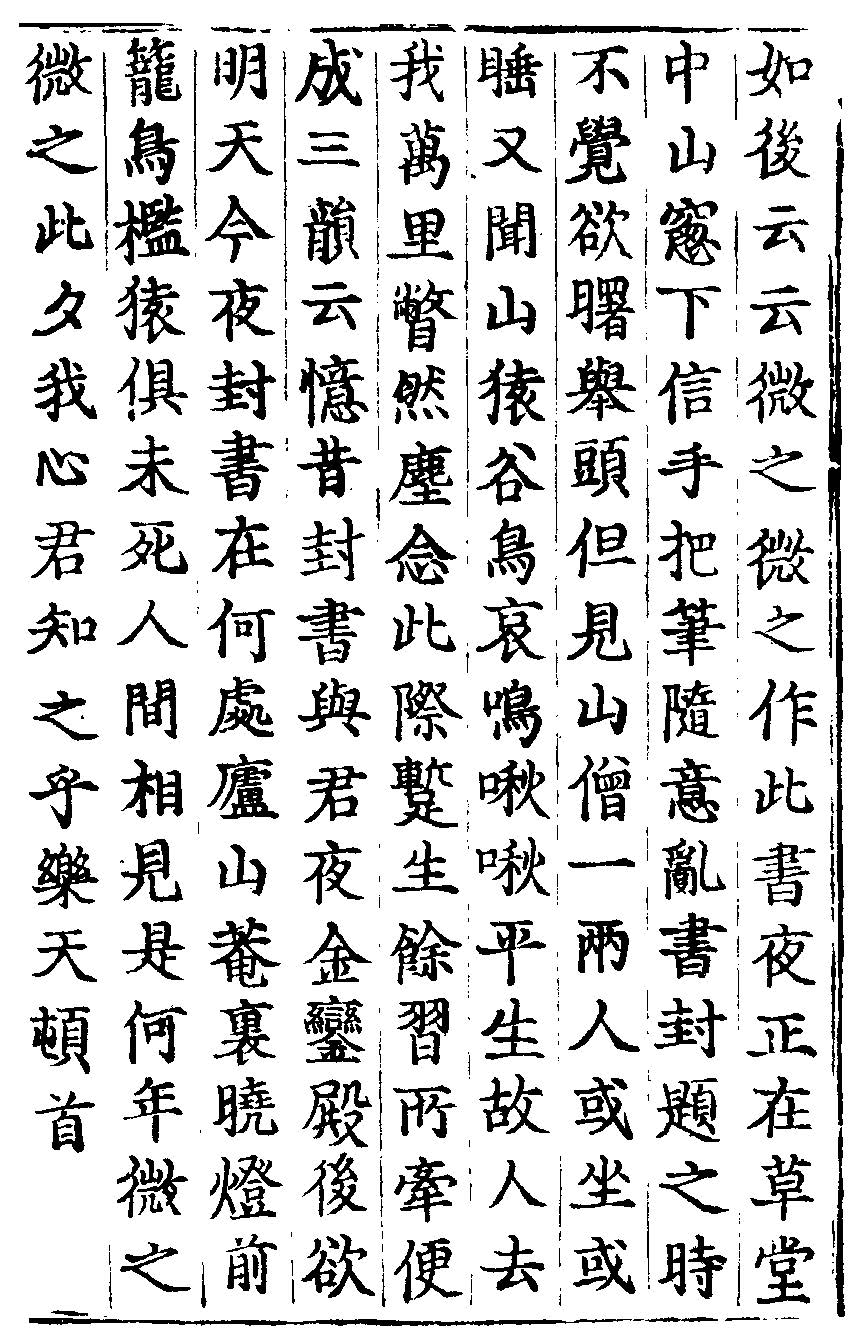 如後云云微之微之作此書夜正在草堂
中山窻下信手把筆隨意亂書封題之時
不覺欲曙舉頭但見山僧一兩人或坐或
睡又聞山猿谷鳥哀鳴啾啾平生故人去
我萬里瞥然塵念此際蹔生餘習所牽便
成三韻云憶昔封書與君夜金鑾殿後欲
明天今夜封書在何處廬山菴裏曉燈前
籠鳥檻猿俱未死人間相見是何年微之
微之此夕我心君知之乎樂天頓首